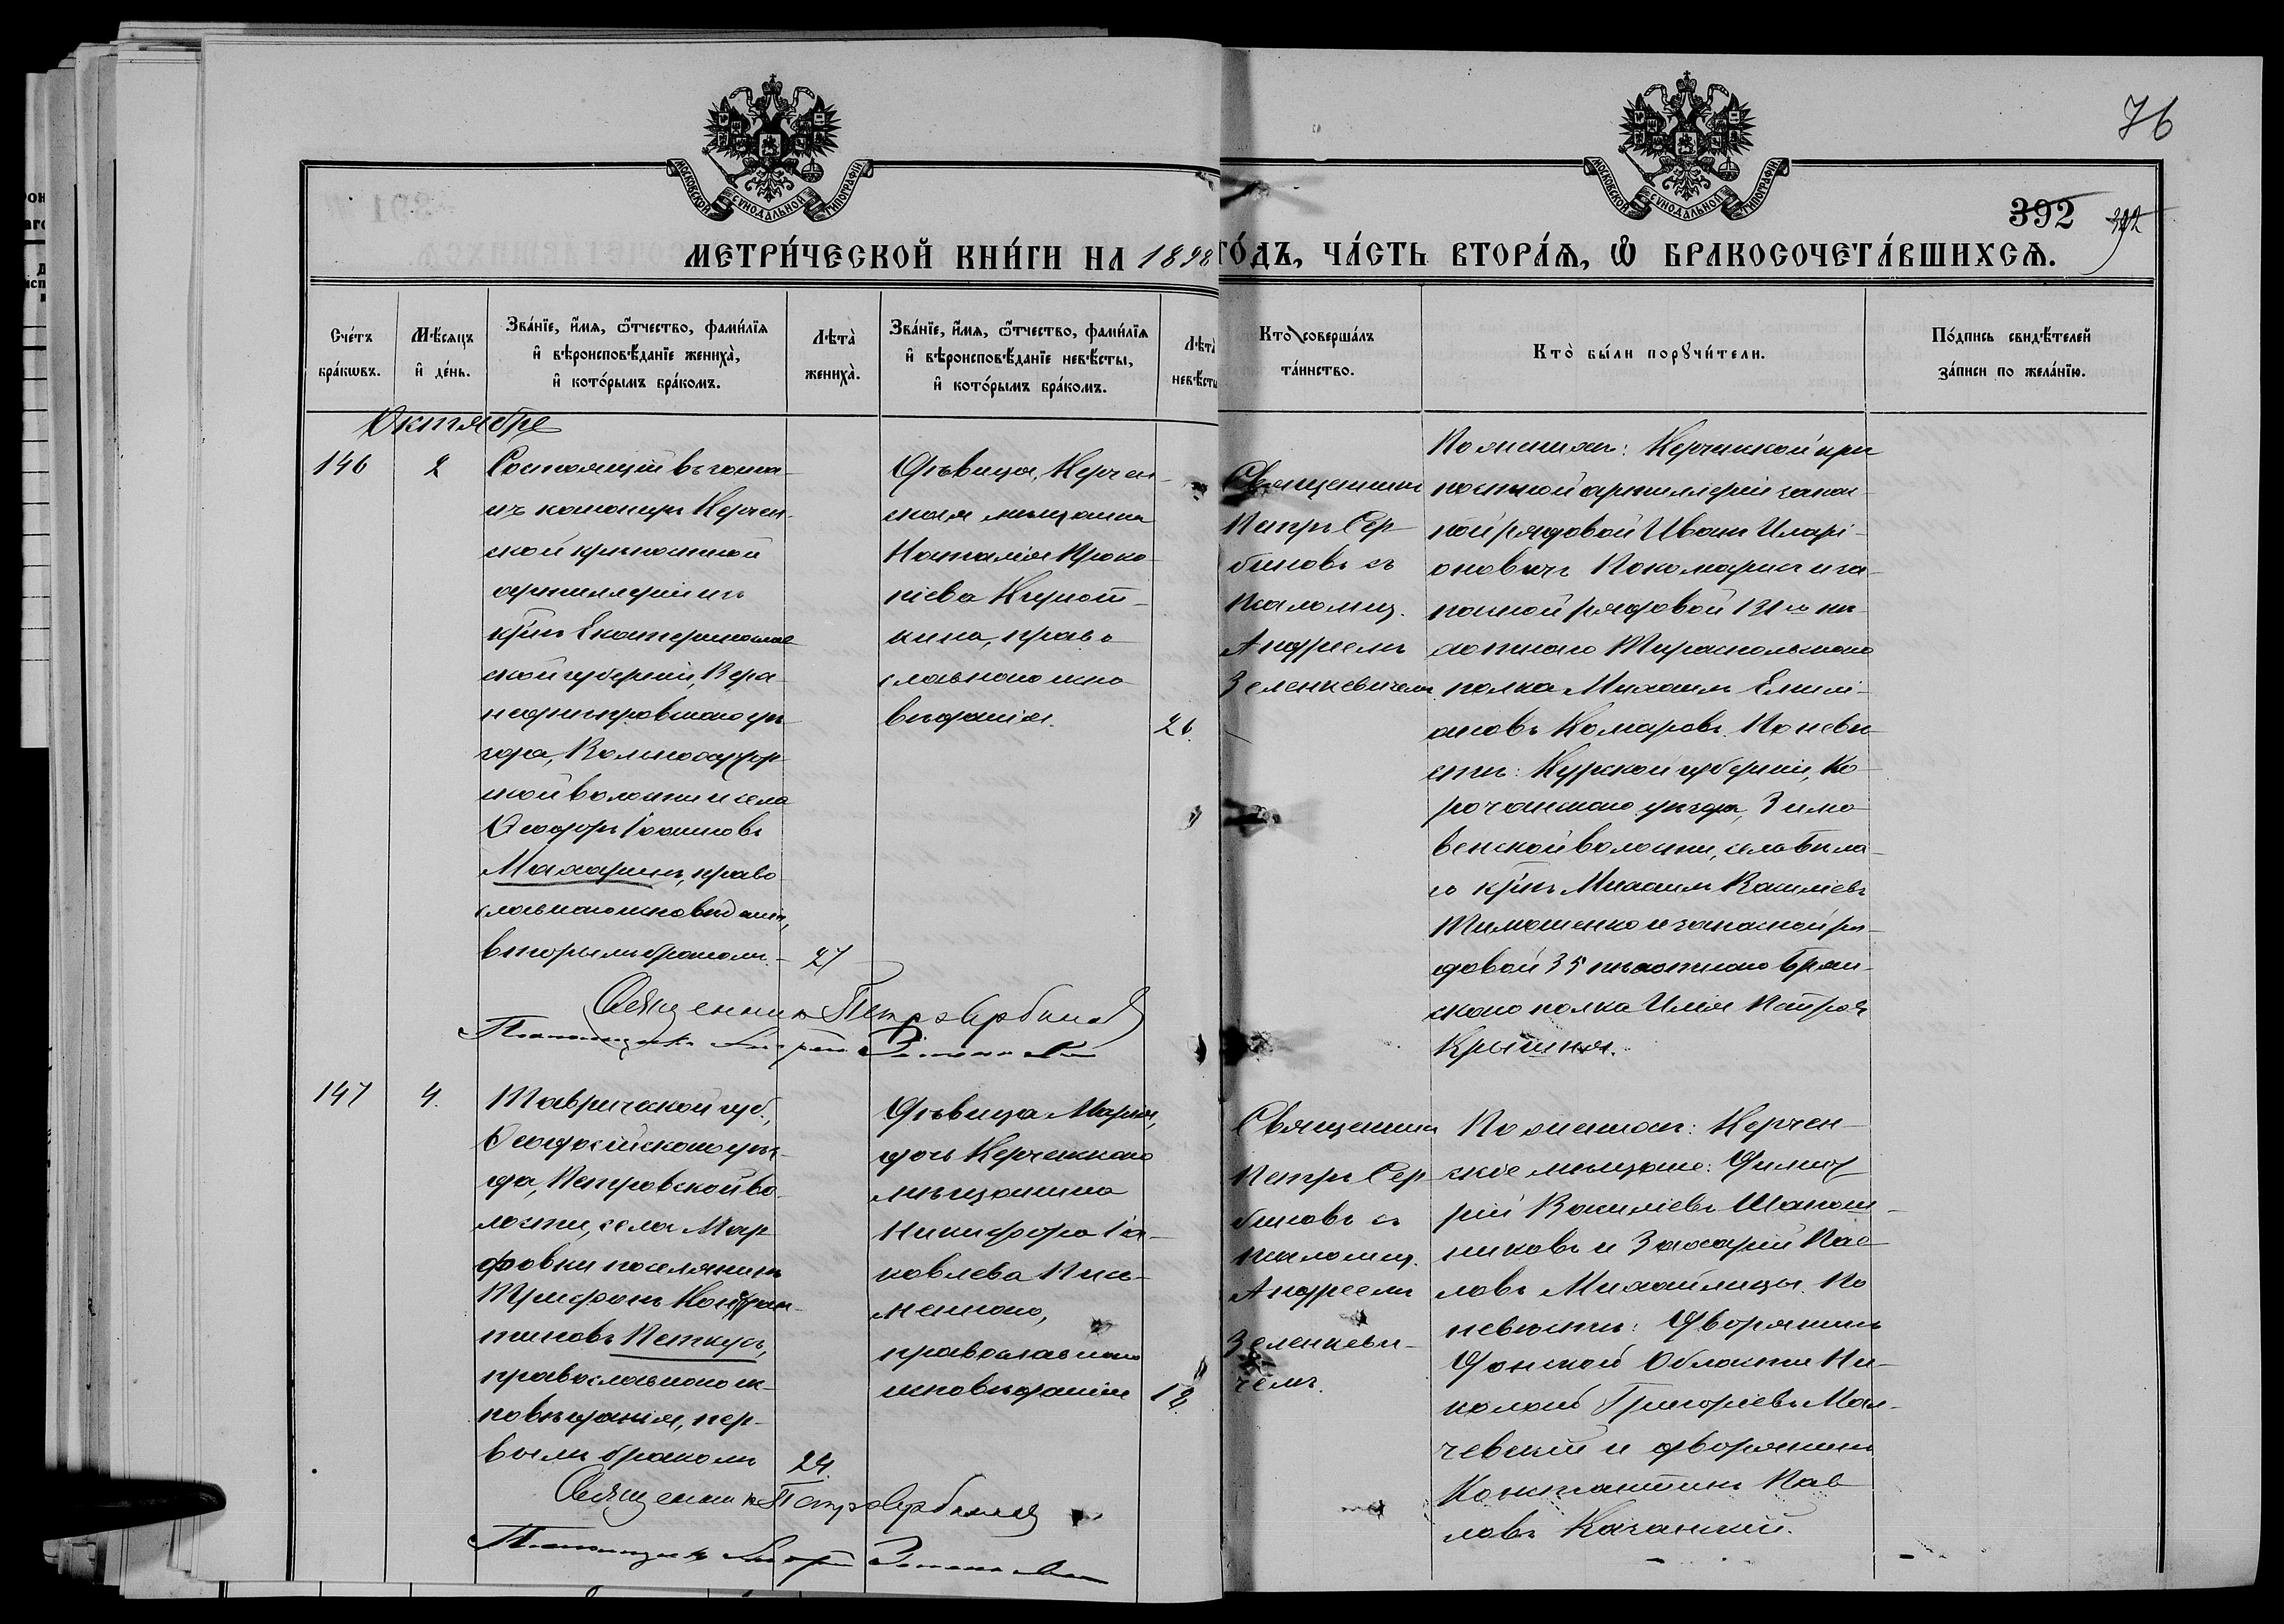 76
МОСКОВСКОЙ СѴНОДАЛЬНОЙ ТИПОГРАФІИ
МОСКОВСКОЙ СѴНОДАЛЬНОЙ ТИПОГРАФІИ
392 392
МЕТРИ́ЧЕСКОЙ КНИ́ГИ НА 1898 ГО́ДЪ, ЧА́СТЬ ВТОРА́Ѧ, Ѡ БРАКОСОЧЕТА́ВШИХСѦ.
Сче́тъ бра́кѡвъ.
Мѣ́сѧцъ и҆ де́нь.
Зва́нїе, и҆́мѧ, ѻ҆́тчество, фами́лїѧ
и҆ вѣроисповѣ́данїе жениха̀,
и҆ кото́рымъ бра́комъ.
Лѣта̀ жениха̀.
Зва́нїе, и҆́мѧ, ѻ҆́тчество, фами́лїѧ
и҆ вѣроисповѣ́данїе невѣ́сты,
и҆ кото́рымъ бра́комъ.
Лѣта̀ невѣ́сты
Кто̀ соверша́лъ
та́инство.
Кто̀ бы́ли порꙋчи́тели.
По́дпись свидѣ́телей
за́писи по жела́нїю.
Октябре
146
2
Состоящій въ запа-
съ Керчен-
ской крѣпостной
артиллеріи изъ
кр̃нъ Екатеринослав
ской губерніи, Верх-
неднѣпровскаго уѣ-
зда,
ской волости и села
Ѳеодоръ Іоанновъ
Махаринъ, право-
славнаго исповѣданія,
вторымъ бракомъ.
27
Дѣвица, Керчен-
ская мѣщанка
Наталія Проко-
піева
кина, право-
славнаго испо-
вѣданія.
26.
Священникъ
Петръ Сер-
биновъ съ
псаломщ.
Андреемъ
Зеленкевичемъ
По женихѣ: Керченской крѣ
постной артиллеріи запас-
ной рядовой Иванъ Иларі-
оновичъ Пономаринъ и за-
пасной рядовой 131го пѣ-
хотнаго Тираспольскаго
полка Михаилъ Емилі-
ановъ Комаровъ. По невѣ-
стѣ: Курской губерніи, Ко-
рочанскаго уѣзда, Зимо-
венской волости, села Бѣла-
го кр̃нъ Михаилъ Василіевъ
Тимошенко и запасной ря-
довой 35 пѣхотнаго Брян-
скаго полка Илія Петровъ
Крышня.
Священникъ Петръ Сербиновъ
Псаломщикъ Андрей Зеленкевичъ
147
4.
Таврической губ.,
Ѳеодосійскаго уѣз-
да, Петровской во-
лости, села Мар-
фовки поселянинъ
Трифонъ Констан-
тиновъ Петкусъ,
православнаго ис-
повѣданія, пер-
вымъ бракомъ
24.
Дѣвица Марія,
дочь Керченскаго
мѣщанина
Никифора Іа-
ковлева Пись-
меннаго,
православнаго
исповѣданія
18.
Священникъ
Петръ Сер-
биновъ съ
псаломщ.
Андреемъ
Зеленкеви-
чемъ.
По женихѣ: Керчен-
скіе мѣщане: Димит-
рій Василіевъ Шапош-
никовъ и Захарій Пав-
ловъ Михайлицы. По
невѣстѣ: Дворянинъ
Донской Области Ни-
колай Григоріевъ Мал-
чевскій и дворянинъ
Константинъ Пав-
ловъ Качанскій.
Священникъ Петръ Сербиновъ
Псаломщикъ Андрей Зеленкевичъ